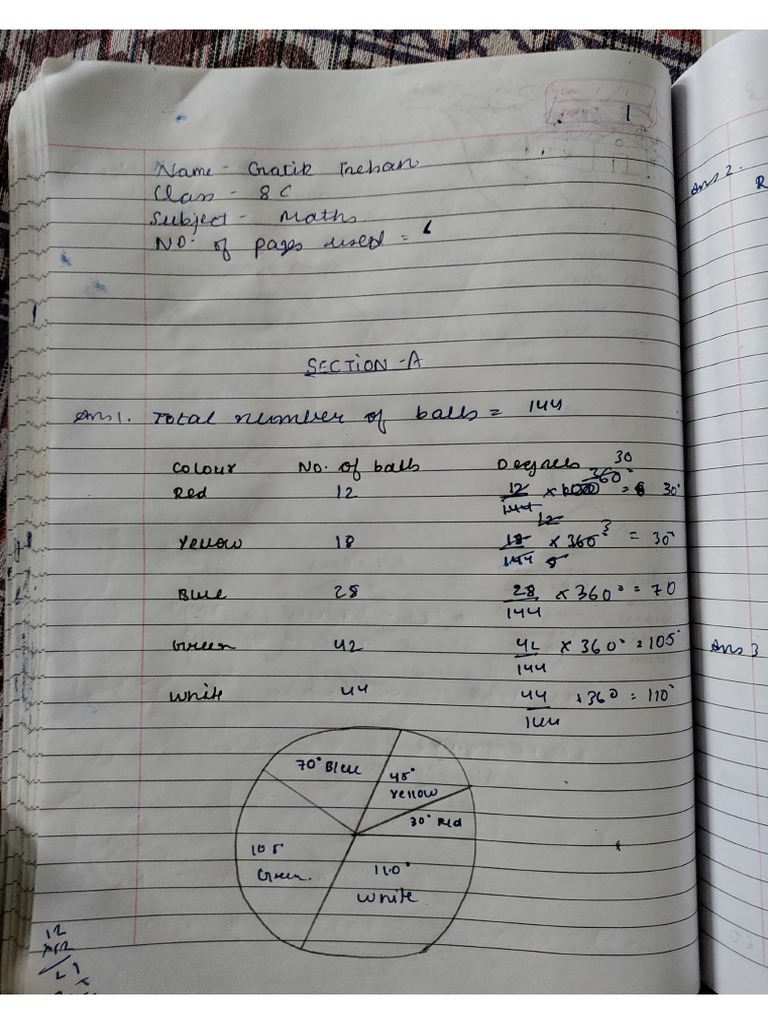 Date / /
Page no.
1
Name - Gratik Trehan
Class - 8 C
Subject - Maths
No. of pages used = 6
1
SECTION - A
Ans 1. Total number of balls = 144
Colour No. of balls Degrees
Red 12 12/144 × 360° = 30°
Yellow 18 18/144 × 360° = 30°
Blue 28 28/144 × 360° = 70
Green 42 42/144 × 360° = 105°
White 44 44/144 × 360 = 110°
70° Blue
45°
Yellow
30° Red
105°
Green.
110°
White
12
Ans 2.
R
Ans 3